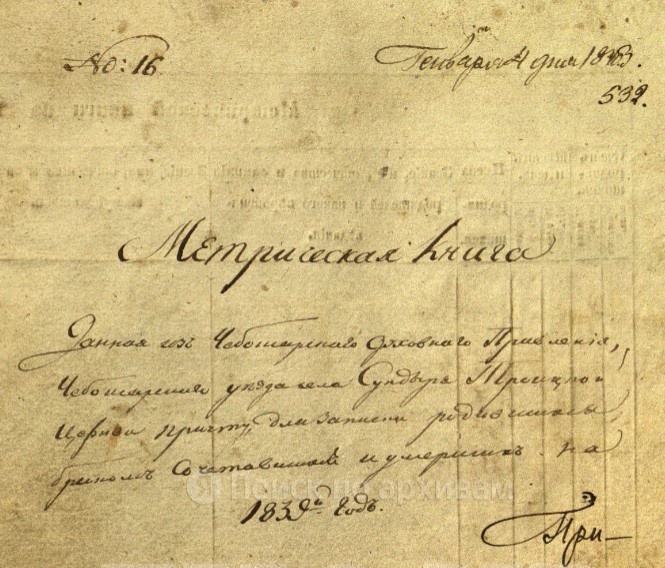 No: 16
Генваря 4 дня
532.
Метрическая Книга
Данная изъ Чебоксарскаго духовнаго Правленія,
Чебоксарскаго уезда села Сундыря Троицкой
Церкви причту, для записки родившихся,
бракомъ Сочетавшихся и умершихъ на
1839й Годъ.
При-
Поиск по архивам